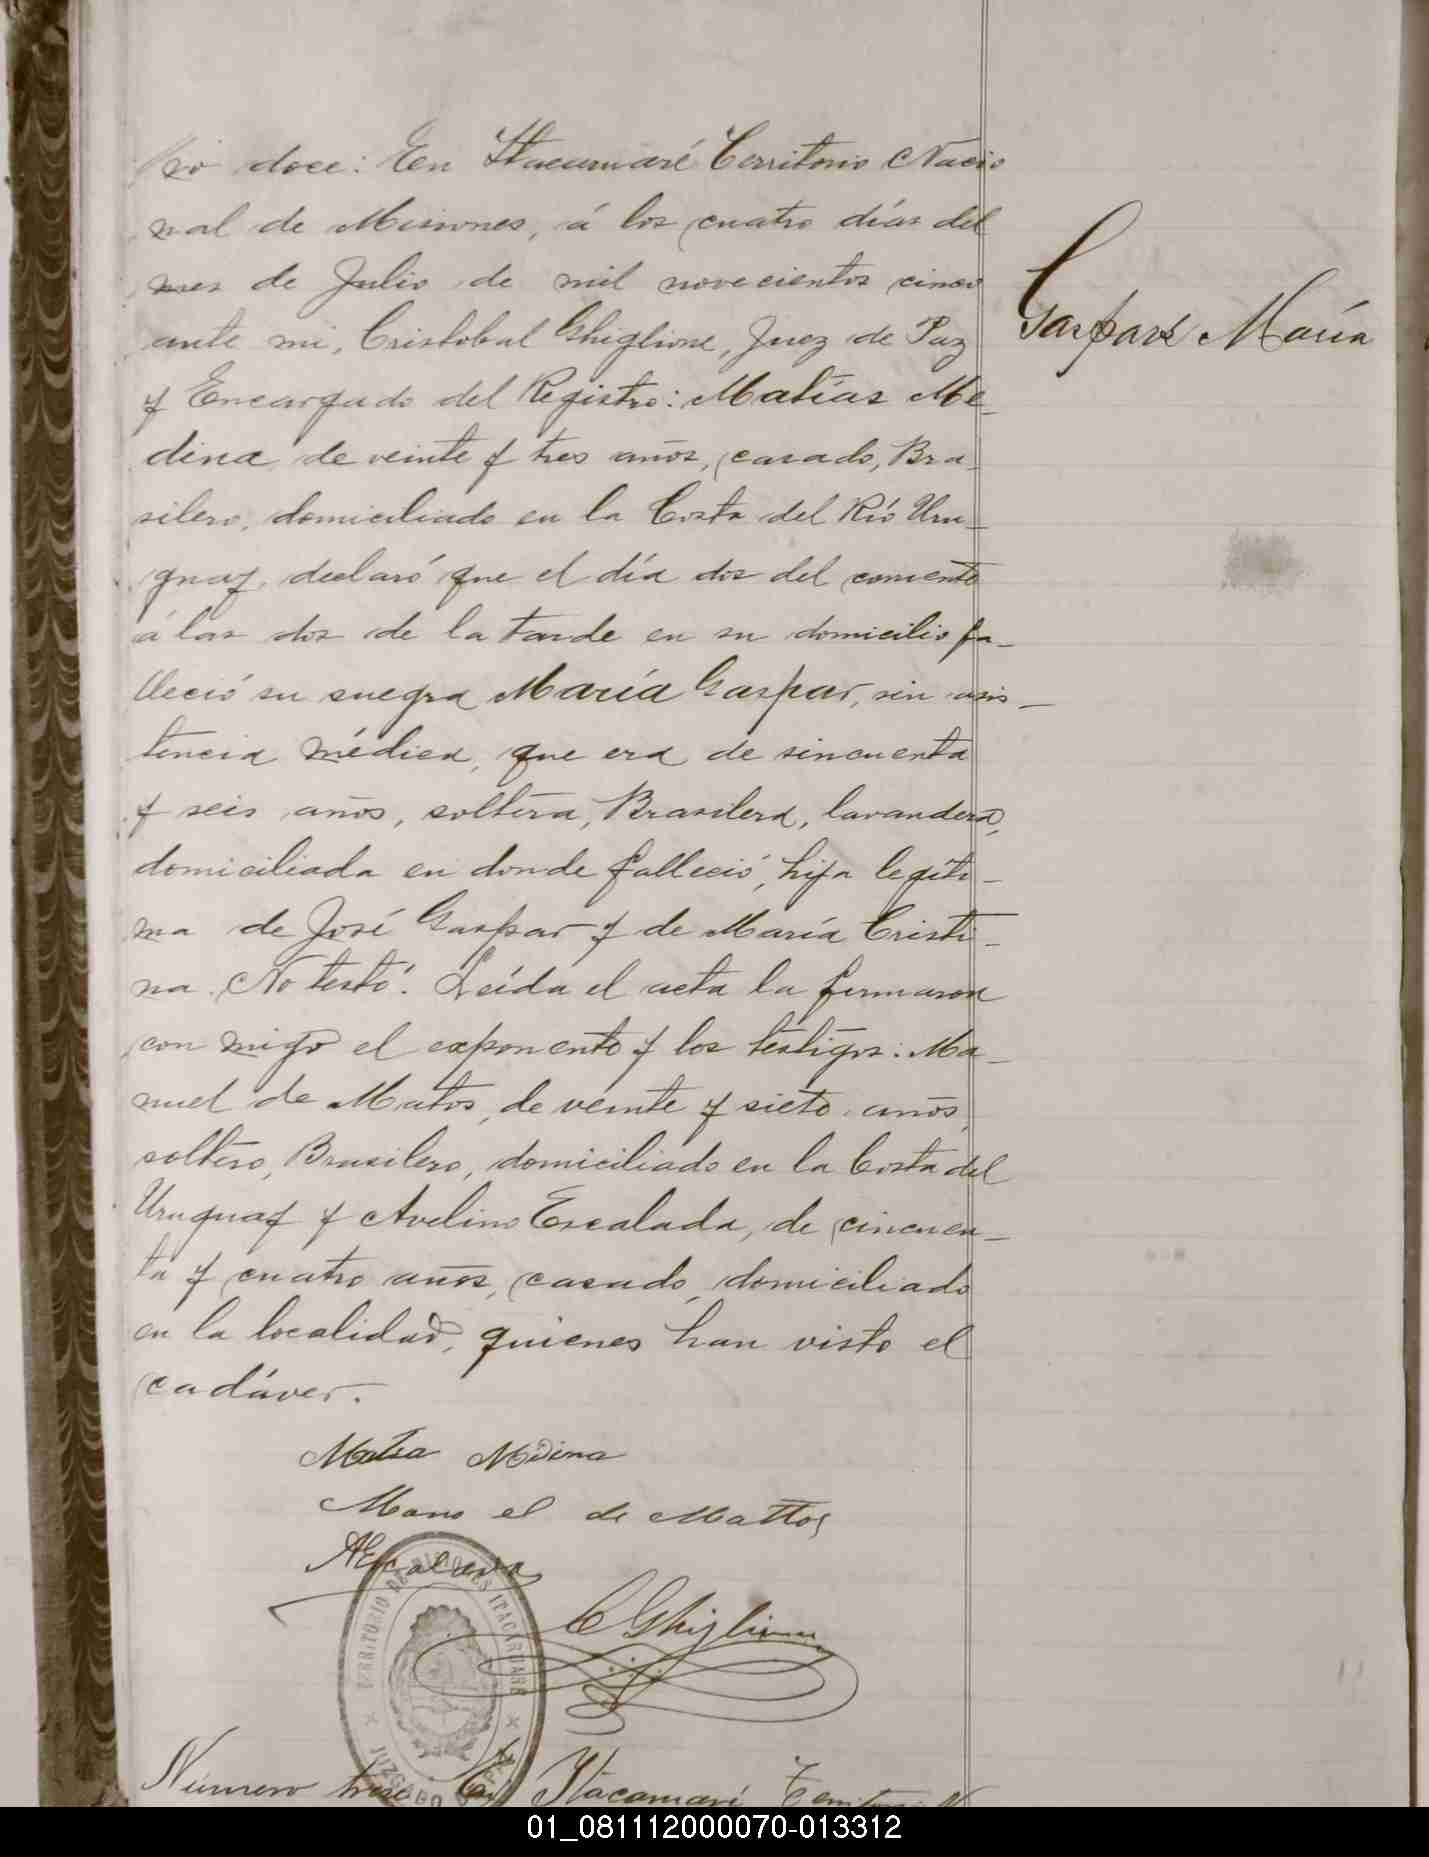 No doce: En Itacaruaré Territorio Nacio
nal de Misiones, á los cuatro días del
mes de Julio de mil novecientos cinco
ante mi, Cristobal Ghiglione, Juez de Paz
y Encargado del Registro: Matías Me-
dina de veinte y tres años, casado, Bra-
silero, domiciliado en la Costa del Río Uru-
guay, declaró que el día dos del corriente
á las dos de la tarde en su domicilio fa-
lleció su suegra María Gaspar, sin asis-
tencia médica, que era de sincuenta
y seis años, soltera, Brasilera, lavandera,
domiciliada en donde falleció, hija legíti-
ma de José Gaspar y de María Cristi-
na. No testó. Leída el acta la firmaron
con migo el exponente y los testigos: Ma-
nuel de Matos, de veinte y siete años,
soltero, Brasilero, domiciliado en la Costa del
Uruguay y Avelino Escalada, de cincuen-
ta y cuatro años, casado, domiciliado
en la localidad, quienes han visto el
cadáver.
Gaspar María
Matia Midina
Mano el de Mattos
AEscalada
C Ghiglione
TERRITORIO DE MISIONES ITACARUARE
JUZGADO DE PAZ
Número trece En Itacaruaré Territorio N
01_081112000070-013312